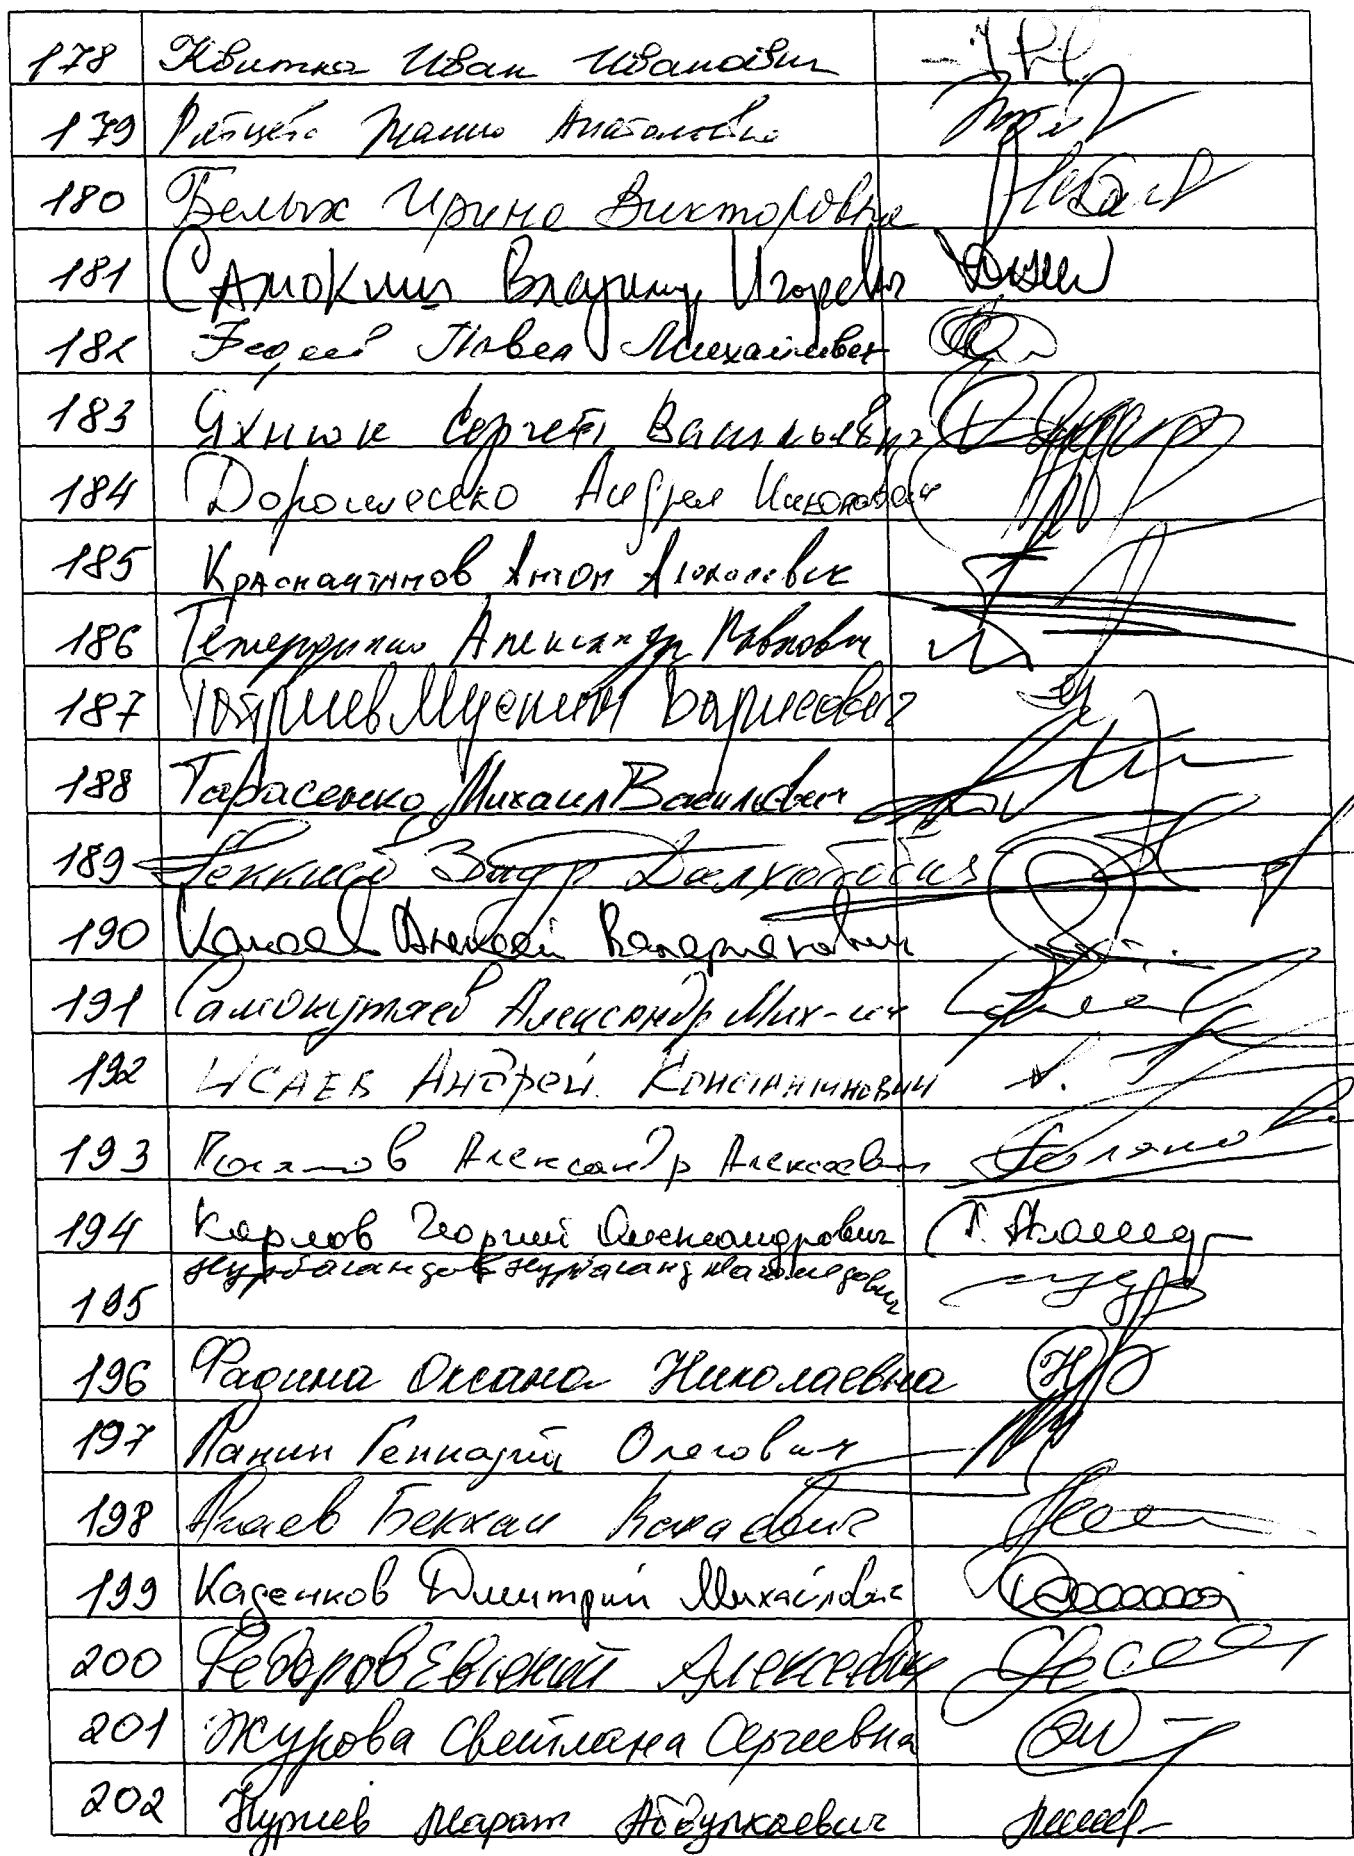 178 Квитка Иван Иванович
179 Рябцева Жанна Анатольевна
180 Белых Ирина Викторовна
181 Самокиш Владимир Игоревич
182 Федяев Павел Михайлович
183 Яхнюк Сергей Васильевич
184 Дорошенко Андрей Николаевич
185 Красноштанов Антон Алексеевич
186 Тетердинко Александр Павлович
187 Таймиев Борисович
188 Тарасенко Михаил Васильевич
189 Геккиев Заур Далхатович
190 Канаев Алексей Валерианович
191 Самокутяев Александр Мих-ич
192 Исаев Андрей Константинович
193 Поляков Александр Алексеевич
194 Карлов Георгий Александрович
195 Нурбагандов Нурбаганд Магомедович
196 Фадина Оксана Николаевна
197 Панин Геннадий Олегович
198 Агаев Бекхан Вахаевич
199 Каденков Дмитрий Михайлович
200 Федоров Евгений Алексеевич
201 Журова Светлана Сергеевна
202 Нуриев Марат Абдулхаевич